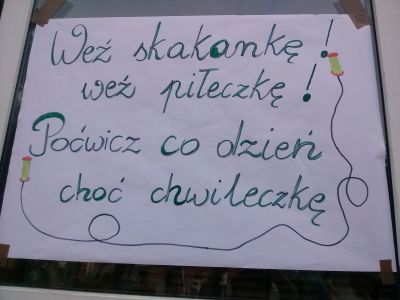 Weź skakankę!
weź piłeczkę!
Poćwicz co dzień
choć chwileczkę